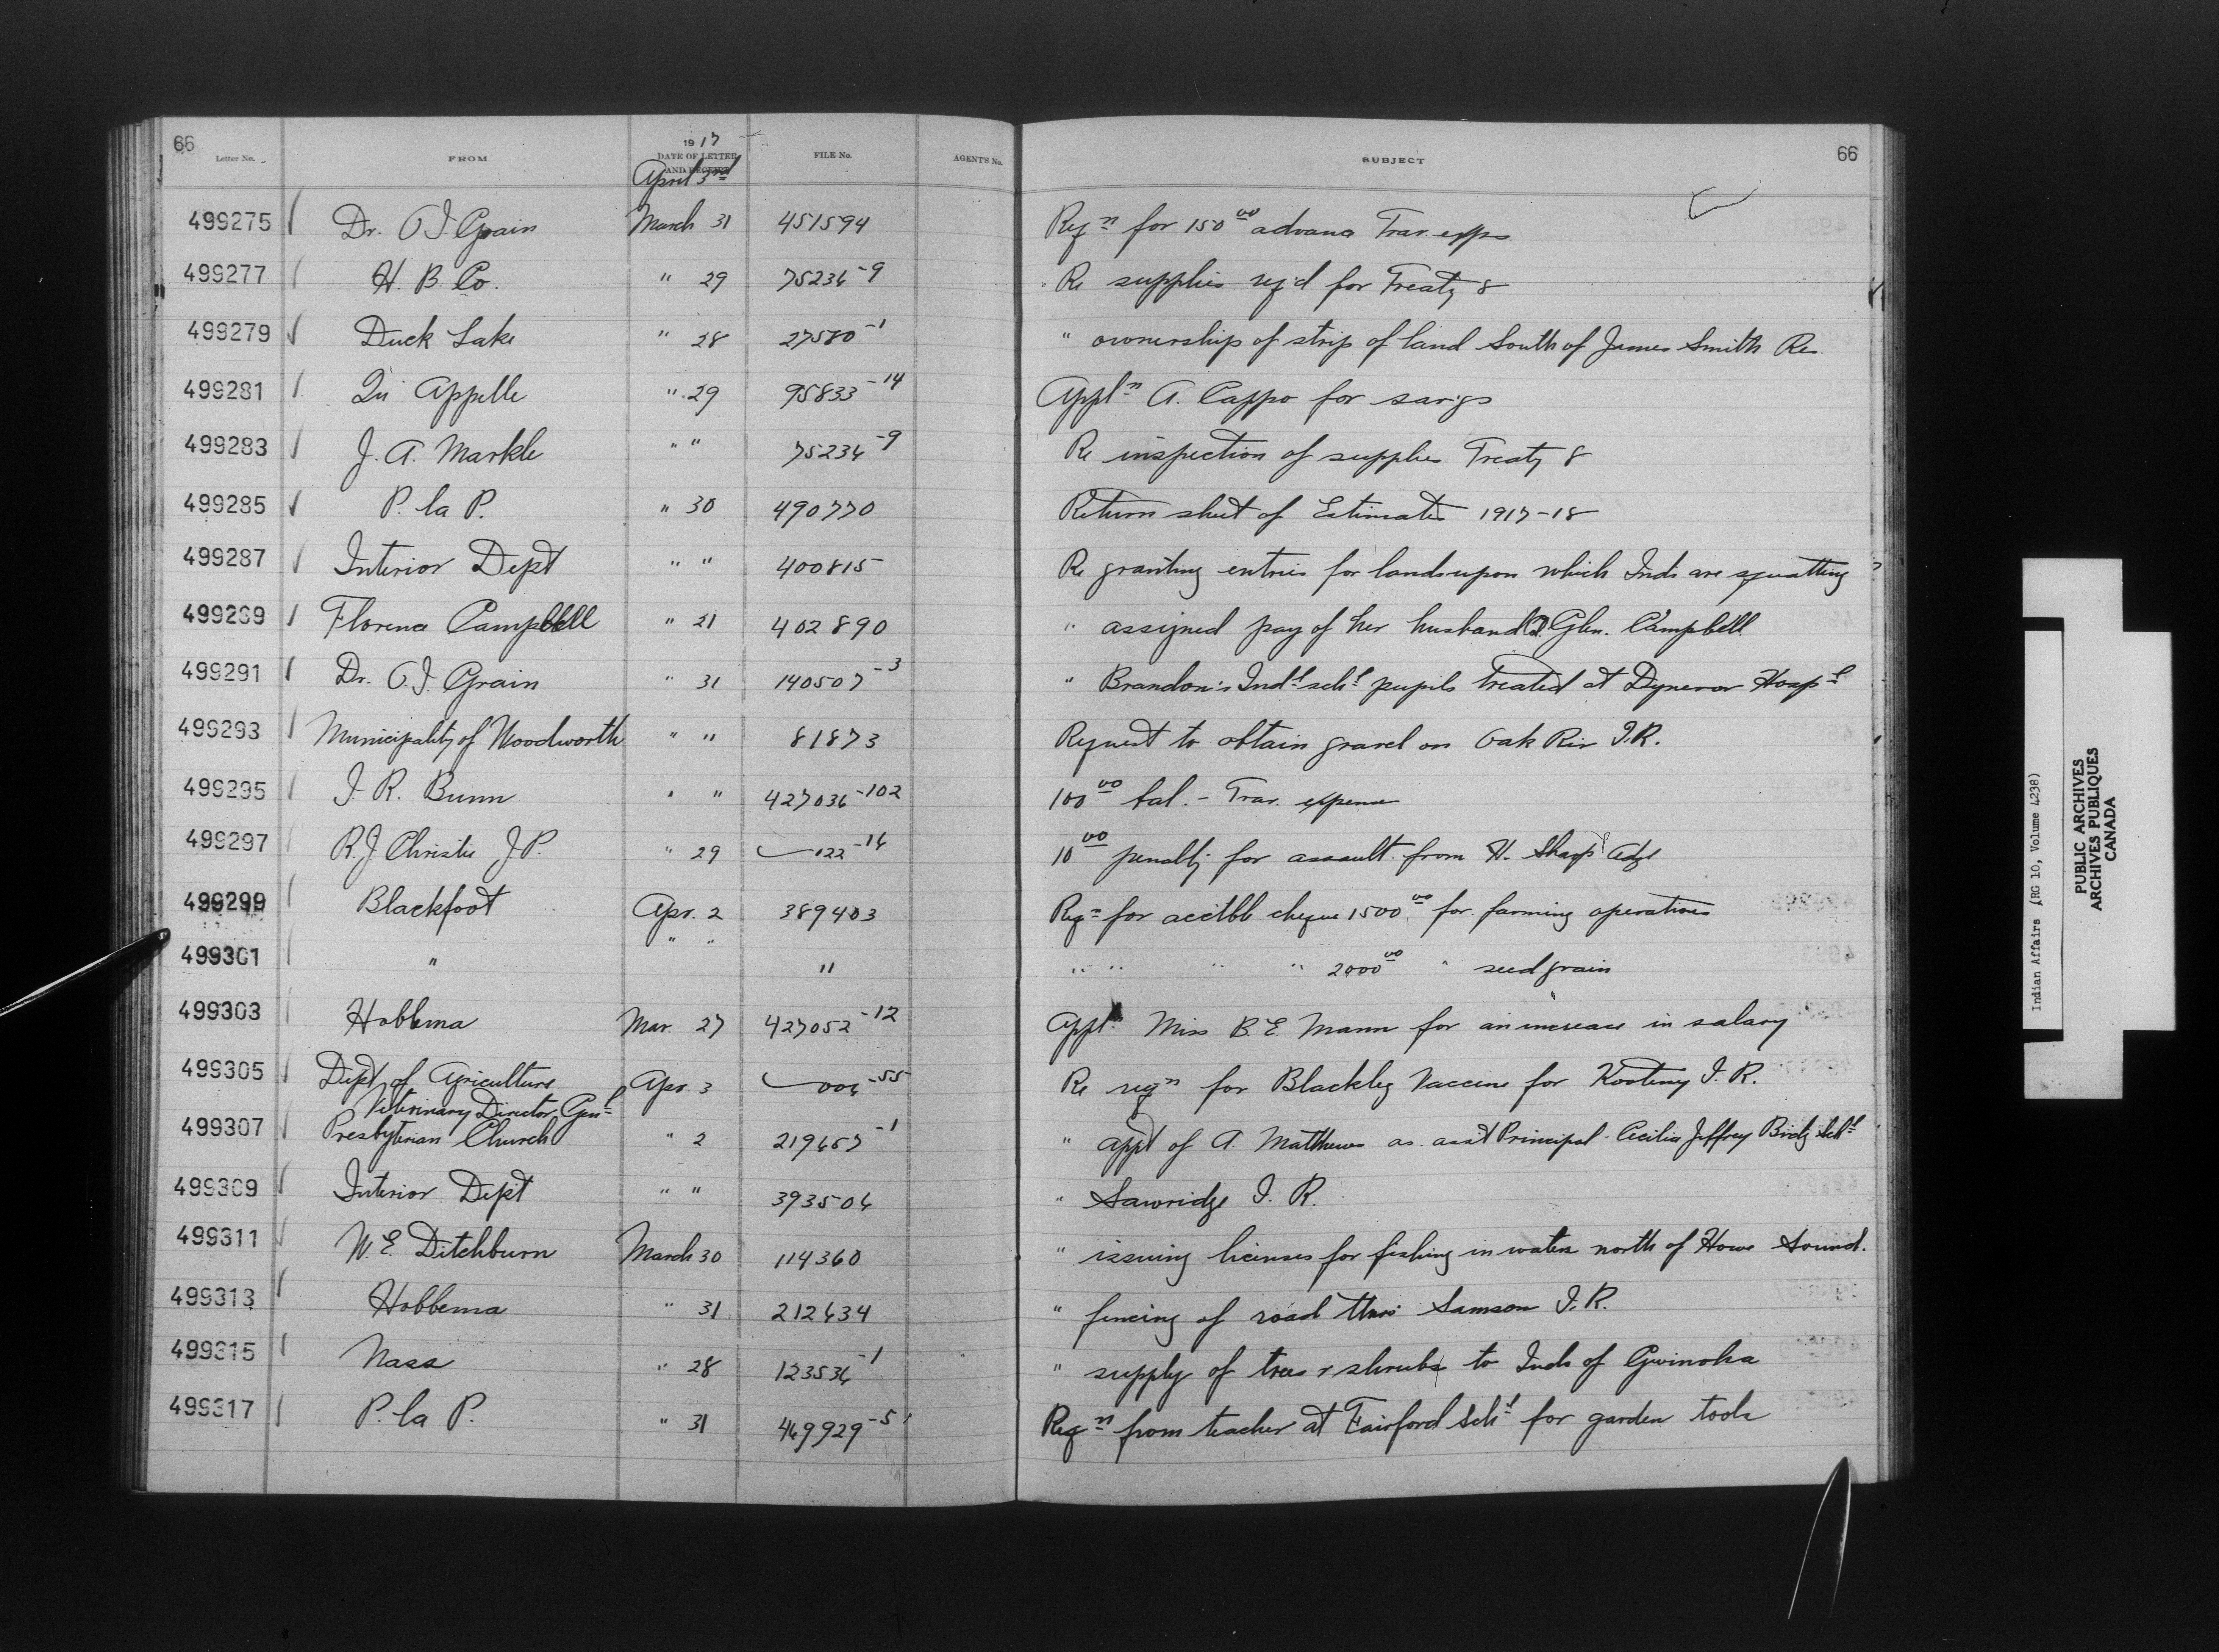 66
Letter No.
FROM
1917
DATE OF LETTER
AND RECEIPT
FILE No.
AGENT'S No.
SUBJECT
66
April 3rd
499275 Dr. O. I. Grain March 31 451594 Reqn for 150 00 advance Trav. exps
499277 H. B. Co. " 29 75236-9 Re supplies req'd for Treaty 8
499279 Duck Lake " 28 27580-1 " ownership of strip of land South of James Smith Res.
499281 Qu Appelle " 29 95833-14 Appln A. Cappo for savgs
499283 J. A. Markle " " 75236-9 Re inspection of supplies Treaty 8
499285 P. la P. " 30 490770 Return sheet of Estimates 1917-18
499287 Interior Dept " " 400815 Re granting entries for lands upon which Inds are squatting
499289 Florence Campbell " 21 402890 " assigned pay of her husband Glen. Campbell
499291 Dr. O. I. Grain " 31 140507-3 " Brandon's Indl schl pupils treated at Dynevor Hospl
499293 Municipality of Woodworth " " 81873 Request to obtain gravel on Oak Riv I.R.
499295 J. R. Bunn " " 427036-102 100 00 bal. - Trav. expense
499297 R. J. Christie J.P. " 29 122-16 10 00 penalty for assault from H. Sharp Adge
499299 Blackfoot Apr. 2 389403 Reqn for acctbl cheque 1500 00 for farming operations
499301 " " " " " " " " 2000 00 " seed grain
499303 Hobbema Mar. 27 427052-12 Appln Miss B. E. Mann for an increase in salary
499305 Dept of Agriculture Apr. 3 006-55 Re reqn for Blackleg Vaccine for Kooteny I. R.
Veterinary Director Genl
499307 Presbyterian Church " 2 219657-1 " appt of A. Matthews as asst Principal - Cecilia Jeffrey Birdg Schl
499309 Interior Dep't " " 393506 " Sawridge I. R.
499311 W. E. Ditchburn March 30 114360 " issuing licenses for fishing in waters north of Howe Sound.
499313 Hobbema " 31 212634 " fencing of road thro Samson I. R.
499315 Nass " 28 123536-1 " supply of trees & shrubs to Inds of Gwinoha
499317 P. la P. " 31 469929-5 Reqn from teacher at Fairford Schl for garden tools
Indian Affairs (RG 10, Volume 4238)
PUBLIC ARCHIVES
ARCHIVES PUBLIQUES
CANADA